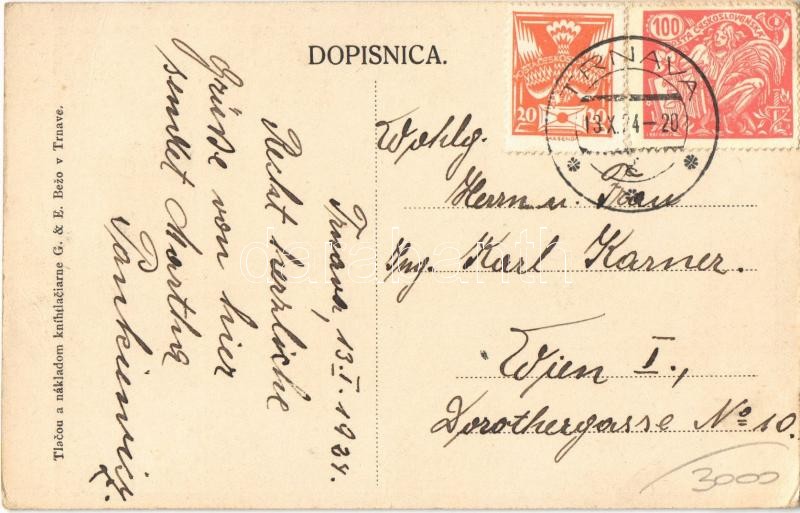 DOPISNICA.
Trnava, 13.I.1924.
Recht herzliche
Grüße von hier
sendet Martha
Wohlg.
Herrn u. Frau
Ing. Karl Karner.
Wien I.,
Dorothergasse No 10.
Tlačou a nákladom kníhtlačiarne G. & E. Bežo v Trnave.
20
POSTA ČESKOSLOVENSKÁ
100
TRNAVA
13.X.24-20
3000
darabanth